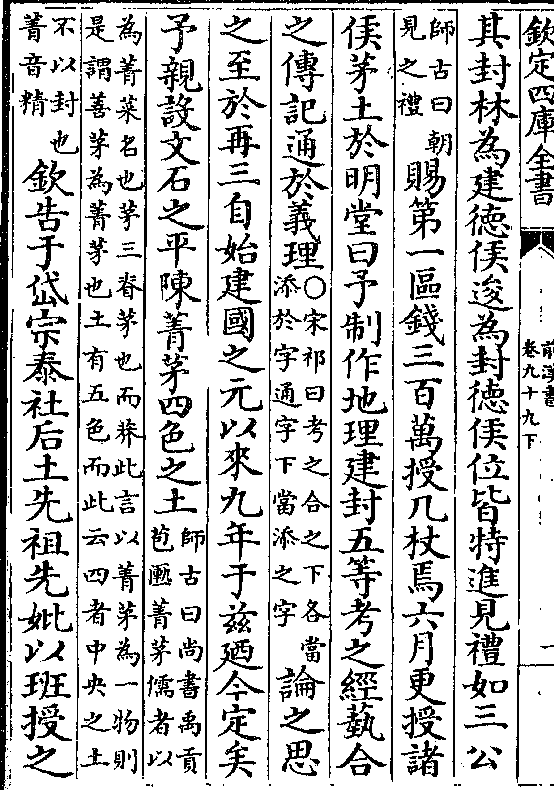 欽定四庫全書
前漢書
卷九十九下
其封林為建德侯逡為封德侯位皆特進見禮如三公
師古曰朝
見之禮
賜第一區錢三百萬授几杖焉六月更授諸
侯茅土於明堂曰予制作地理建封五等考之經蓺合
之傳記通於義理
○宋祁曰考之合之下各當
添於字通字下當添之字
論之思
之至於再三自始建國之元以來九年于茲廼今定矣
予親設文石之平陳菁茅四色之土
師古曰尚書禹貢
苞匭菁茅儒者以
為菁菜名也茅三脊茅也而莽此言以菁茅為一物則
是謂善茅為菁茅也土有五色而此云四者中央之土
不以封也
菁音精
欽告于岱宗泰社后土先祖先妣以班授之